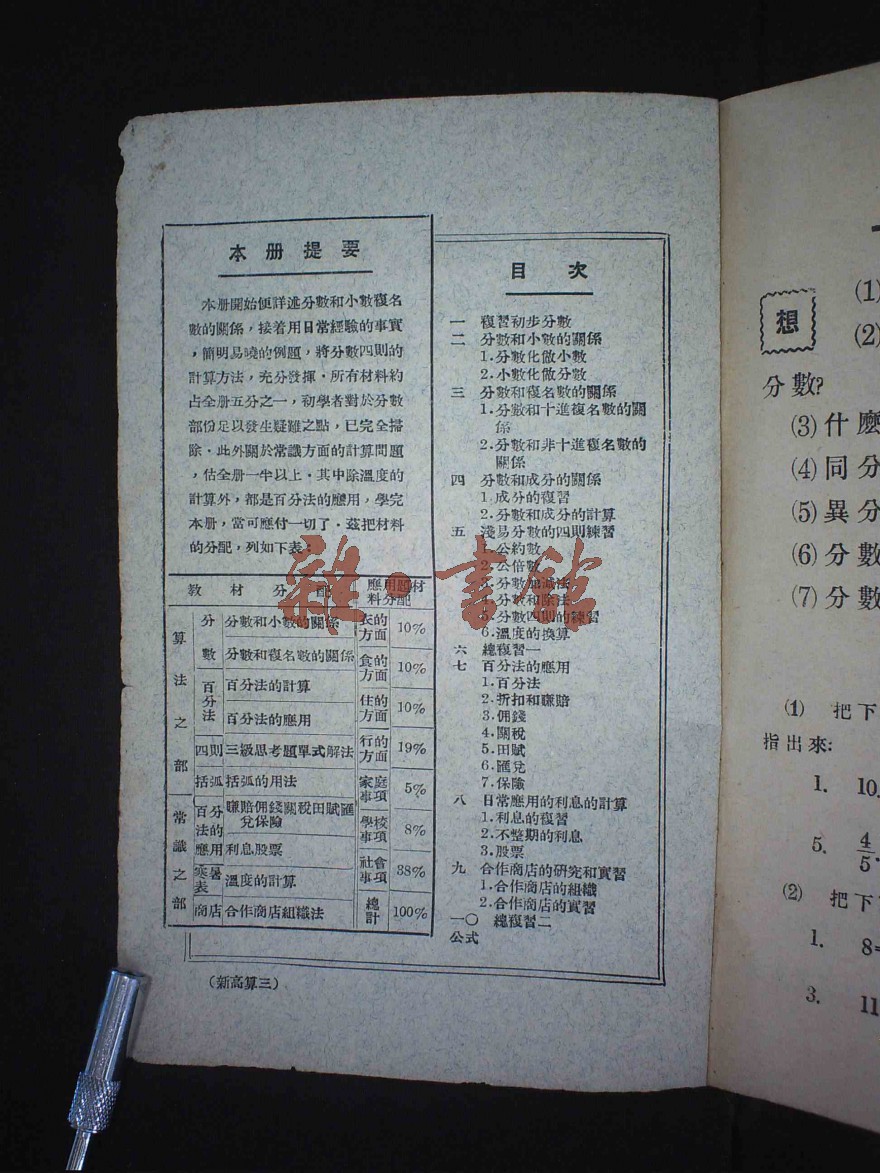 本册提要
本册開始便詳述分數和小數複名
數的關係，接着用日常經驗的事實
，簡明易曉的例題，將分數四則的
計算方法，充分發揮．所有材料約
占全册五分之一，初學者對於分數
部份足以發生疑難之點，已完全掃
除．此外關於常識方面的計算問題
，佔全册一半以上．其中除溫度的
計算外，都是百分法的應用，學完
本册，當可應付一切了．茲把材料
的分配，列如下表：
教材分配 應用題材料分配
算法之部
分數 分數和小數的關係 衣的方面 10%
分數和複名數的關係 食的方面 10%
百分法 百分法的計算 住的方面 10%
百分法的應用
四則 三級思考題單式解法 行的方面 19%
括弧 括弧的用法 家庭事項 5%
常識之部
百分法的應用 賺賠佣錢關稅田賦匯兌保險 學校事項 8%
利息股票 社會事項 38%
寒暑表 溫度的計算
商店 合作商店組織法 總計 100%
(新高算三)
目次
一 複習初步分數
二 分數和小數的關係
1.分數化做小數
2.小數化做分數
三 分數和複名數的關係
1.分數和十進複名數的關
係
2.分數和非十進複名數的
關係
四 分數和成分的關係
1.成分的複習
2.分數和成分的計算
五 淺易分數的四則練習
1.公約數
2.公倍數
3.分數加減法
4.分數和除法
5.分數四則的練習
6.溫度的換算
六 總複習一
七 百分法的應用
1.百分法
2.折扣和賺賠
3.佣錢
4.關稅
5.田賦
6.匯兌
7.保險
八 日常應用的利息的計算
1.利息的複習
2.不整期的利息
3.股票
九 合作商店的研究和實習
1.合作商店的組織
2.合作商店的實習
一〇 總複習二
公式
雜·書館
想
(1)
(2)
分數?
(3)什麼
(4)同分
(5)異分
(6)分數
(7)分數
(1) 把下
指出來:
1. 10.
5. 4/5.
(2) 把下
1. 8=
3. 11